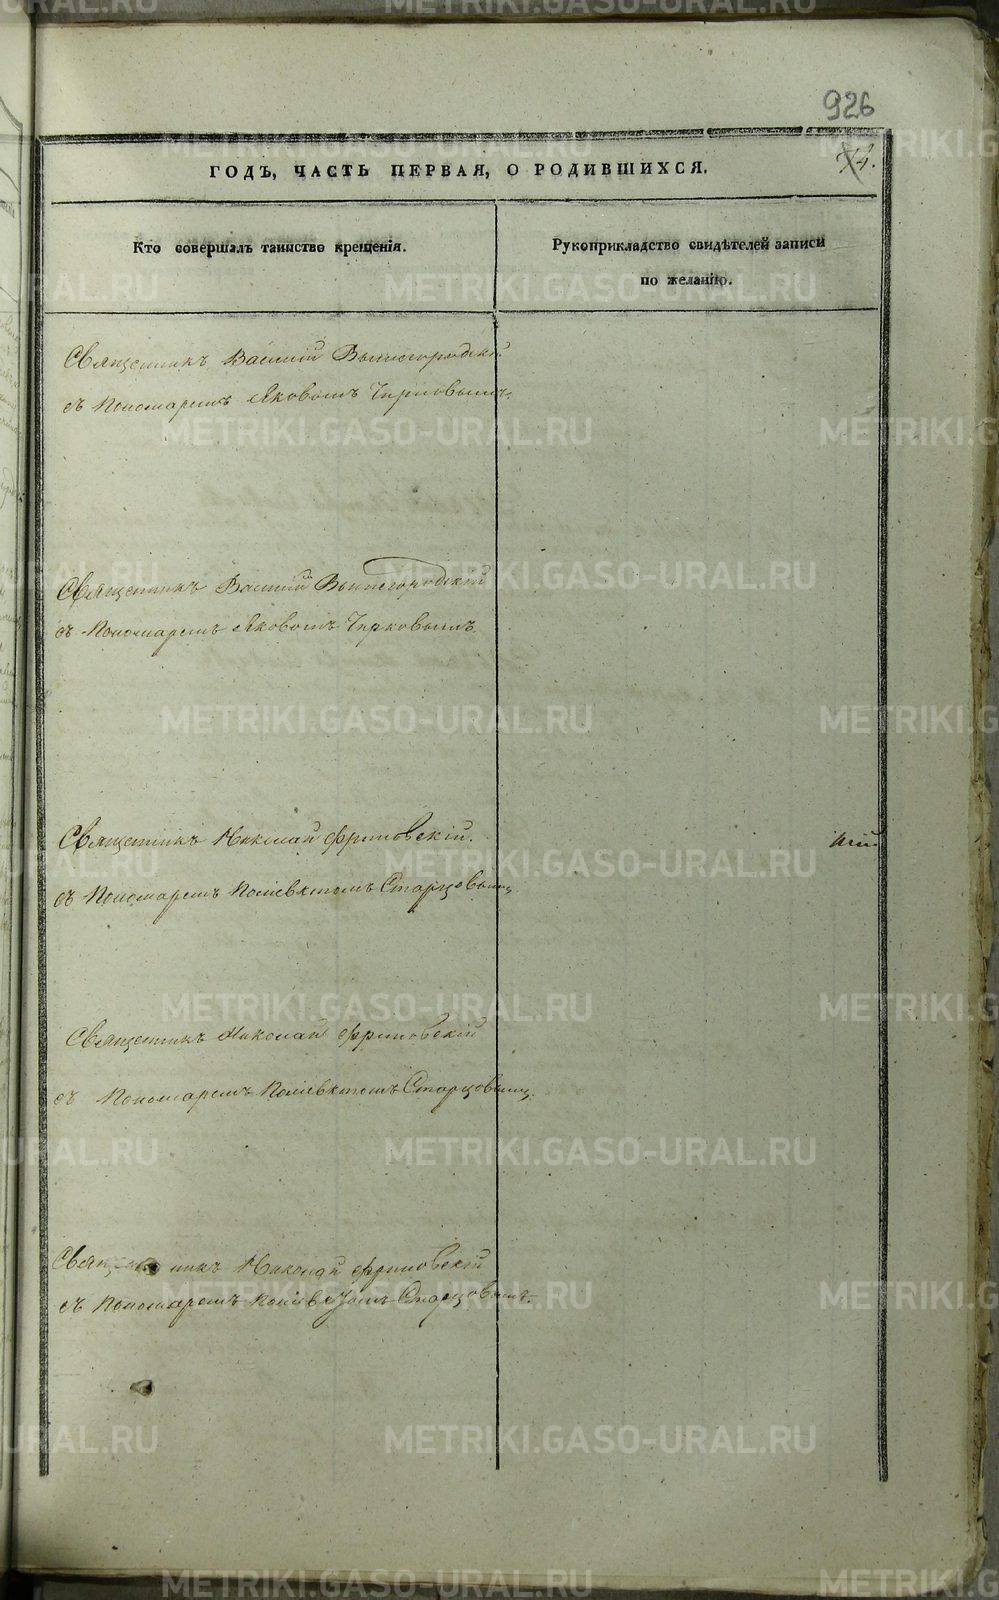 926
ГОДЪ, ЧАСТЬ ПЕРВАЯ, О РОДИВШИХСЯ.
Кто совершалъ таинство крещенія.
Рукоприкладство свидѣтелей записи
по желанію.
Священникъ Василій Вышегородскій
съ Пономаремъ Яковомъ Чирковымъ.
Священникъ Василій Вышегородскій
съ Пономаремъ Яковомъ Чирковымъ
Священникъ Николай Фриновскій.
съ Пономаремъ Поліевктомъ Старцовымъ
Священникъ Николай Фриновскій
съ Пономаремъ Поліевктомъ Старцовымъ.
Священникъ Николай Фриновскій
съ Пономаремъ Поліевктомъ Старцовымъ.
METRIKI.GASO-URAL.RU